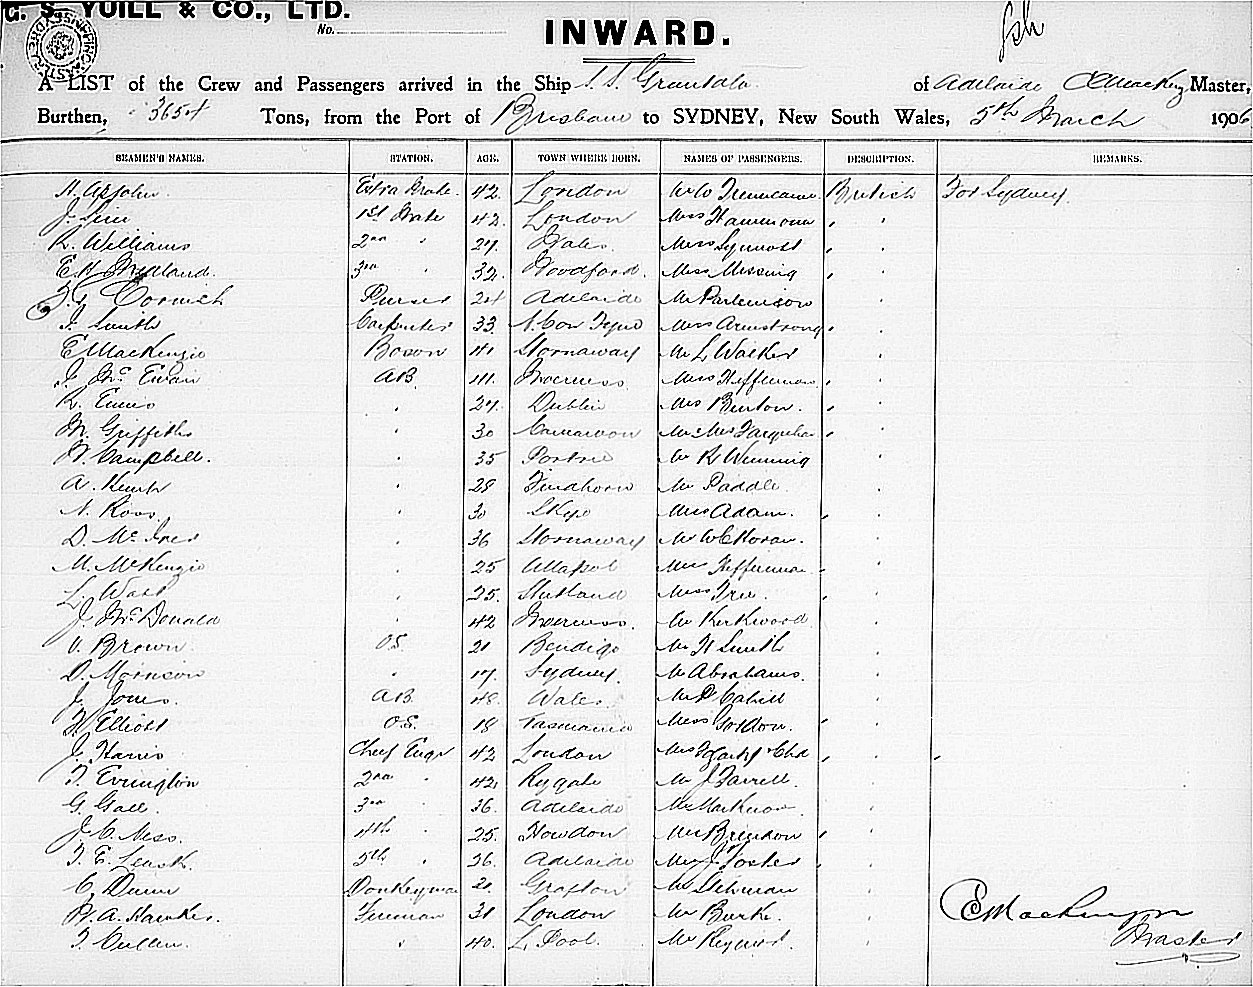 G. S. YUILL & CO., LTD.
No.
INWARD.
A LIST of the Crew and Passengers arrived in the Ship S.S. Grantala of Adelaide Master,
Burthen, 3654 Tons, from the Port of Brisbane to SYDNEY, New South Wales, 5th March 1906
SEAMEN'S NAMES. STATION. AGE. TOWN WHERE BORN. NAMES OF PASSENGERS. DESCRIPTION. REMARKS.
H. Upjohn. Extra Mate. 42. London British For Sydney.
1st Mate 42. London Miss Hammond
R. Williams 2nd " 27. Wales.
E H 3rd " 32. Woodford. Miss Messing
Cornish Purser 24 Adelaide Mr Parkinson
J. Smith Carpenter 33. N. Con Tyne Miss Armstrong
E MacKenzie Boson 41 Stornaway Mr L Walker
J. McEwan AB. 41. Inverness. Miss Heffernan
R. Ennis 27. Dublin Mrs Benton.
M. Griffiths 30 Carnarvon Mr & Mrs Farquhar
Campbell. 35 Portree Mr R Winning
A. 28 Findhorn Mr Paddle
N. Ross. 30 Skye Miss Adam.
D. McIver 36 Stornaway Mr W C Horan.
M. McKenzie 25 Ullapool Heffernan
L. Watt 25. Shetland Miss
J. McDonald 42 Inverness. Mr Kirkwood
V. Brown. O.S. 21 Bendigo Mr H Smith
D. Morrison 17. Sydney. Mr Abrahams.
J. Jones. AB. 48. Wales. Mr P Cahill
Elliott O.S. 18 Tasmania Miss Gordon.
J. Harris Chief Engr 42 London
T. Errington 2nd " 42. Rygate Mr J Farrell.
G. Gall. 3rd " 36. Adelaide
J. C. Ness. 4th " 25. Howdon Mrs Brendon
T. E. Leask. 5th " 36. Adelaide J Foster
C. Dunn Donkeyman Grafton
A. Hawker. Fireman 31 London Mr Burke.
T. Cullen. 40. L. Pool.
E Mackenzie
Master